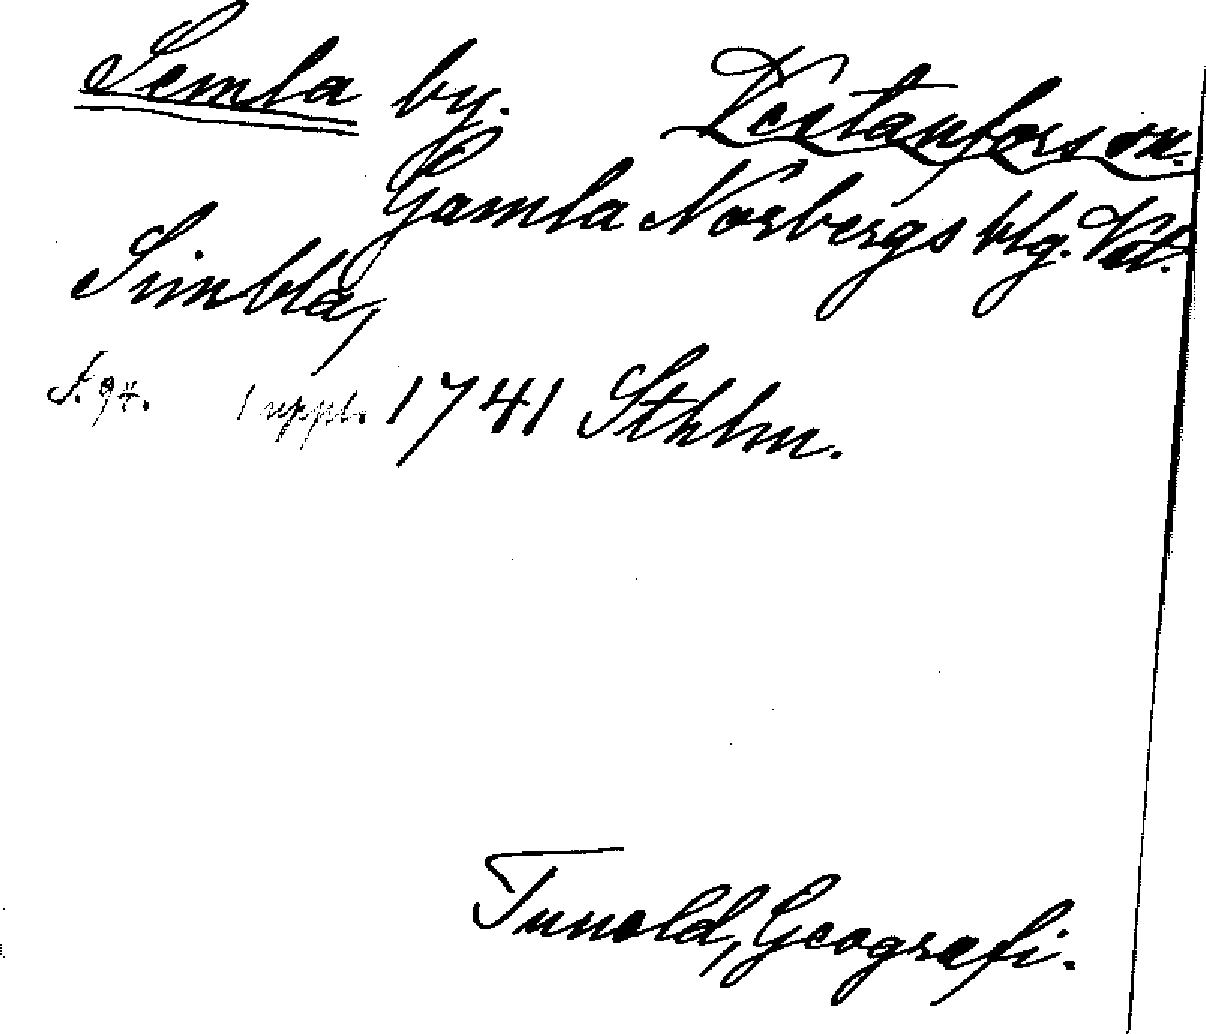 Semla by. Västanfors sn.
Gamla Norbergs blg. Vstl.
Simbla,
S. 94. 1 uppl. 1741 Sthlm.
Tuneld, Geografi.